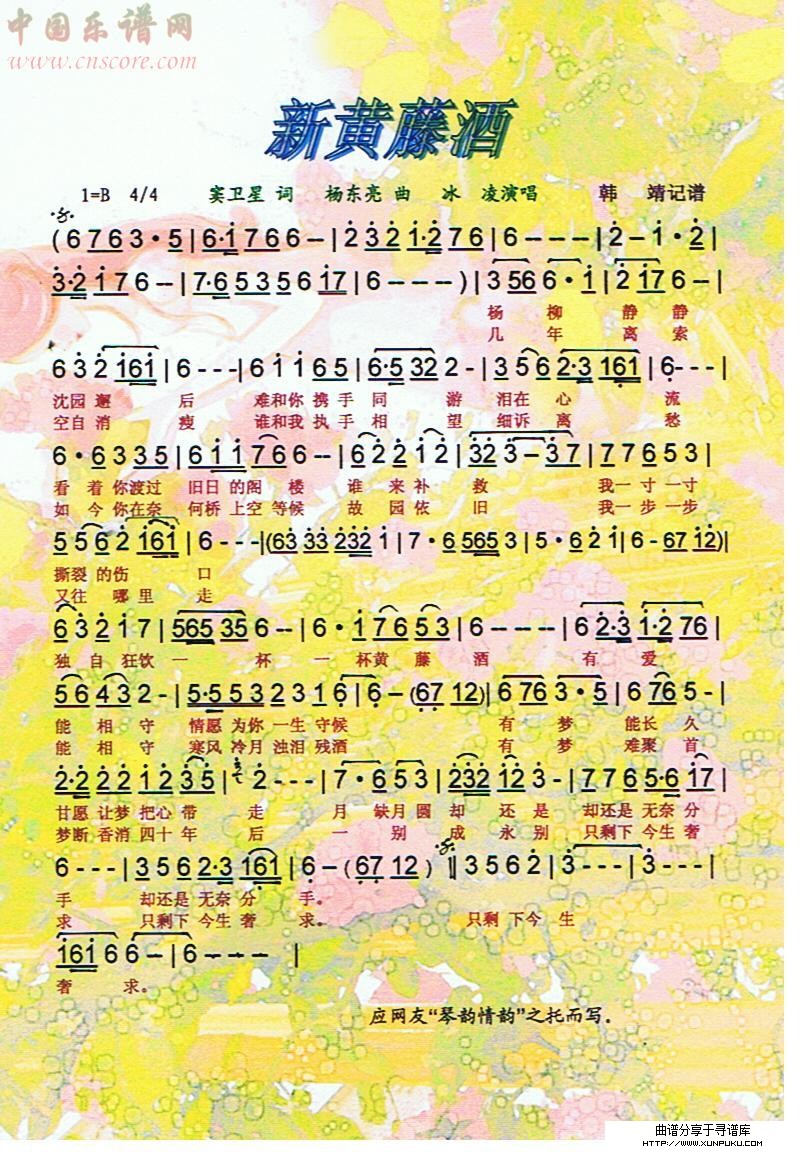 中国乐谱网
www.cnscore.com
新黄藤酒
1=B 4/4 窦卫星 词 杨东亮 曲 冰 凌演唱 韩 靖记谱
(6 7 6 3·5|6·1 7 6 6--|2 3 2 1·2 7 6|6---|2-1·2|
3·2 1 7 6--|7·6 5 3 5 6 1 7|6---)|3 5 6 6·1|2 1 7 6-|
杨 柳 静 静
几 年 离 索
6 3 2 1 6 1|6---|6 1 1 6 5|6·5 3 2 2-|3 5 6 2·3 1 6 1|6---|
沈园 邂 后 难和你 携 手 同 游 泪在 心 流
空自 消 瘦 谁和我 执 手 相 望 细诉 离 愁
6·6 3 3 5|6 1 1 7 6 6--|6 2 2 1 2|3 2 3-3 7|7 7 6 5 3|
看 着 你渡过 旧日 的阁 楼 谁 来 补 救 我一 寸 一寸
如 今 你在奈 何桥 上空 等候 故 园 依 旧 我一 步 一步
5 5 6 2 1 6 1|6---|(6 3 3 3 2 3 2 1|7·6 5 6 5 3|5·6 2 1|6-6 7 1 2)|
撕裂 的伤 口
又往 哪 里 走
6 3 2 1 7|5 6 5 3 5 6--|6·1 7 6 5 3|6---|6 2·3 1·2 7 6|
独 自 狂饮 一 杯 一 杯黄 藤 酒 有 爱
5 6 4 3 2-|5·5 5 3 2 3 1 6|6-(6 7 1 2)|6 7 6 3·5|6 7 6 5-|
能 相 守 情愿 为你 一生 守候 有 梦 能长 久
能 相 守 寒风 冷月 浊泪 残酒 有 梦 难聚 首
2·2 2 2 1 2 3 5|2---|7·6 5 3|2 3 2 1 2 3-|7 7 6 5·6 1 7|
甘愿 让梦 把心 带 走 月 缺月 圆 却 还 是 却还 是 无奈 分
梦断 香消 四十 年 后 一 别 成 永 别 只剩 下 今生 奢
6---|3 5 6 2·3 1 6 1|6-(6 7 1 2)‖3 5 6 2|3---|3---|
手 却还 是 无奈 分 手。
求 只剩 下 今生 奢 求。 只剩 下今 生
1 6 1 6 6-|6--- |
奢 求。
应网友“琴韵情韵”之托而写.
曲谱分享于寻谱库
HTTP://WWW.XUNPUKU.COM